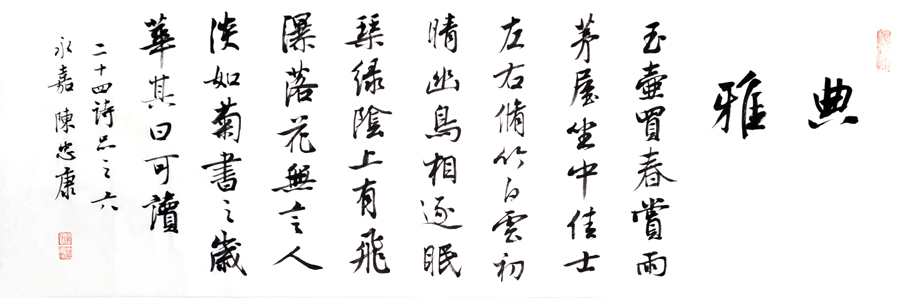 典雅
玉壺買春賞雨
茅屋坐中佳士
左右脩竹白雲初
晴幽鳥相逐眠
琴綠陰上有飛
瀑落花無言人
淡如菊書之歲
華其曰可讀
二十四詩品之六
永嘉陳忠康